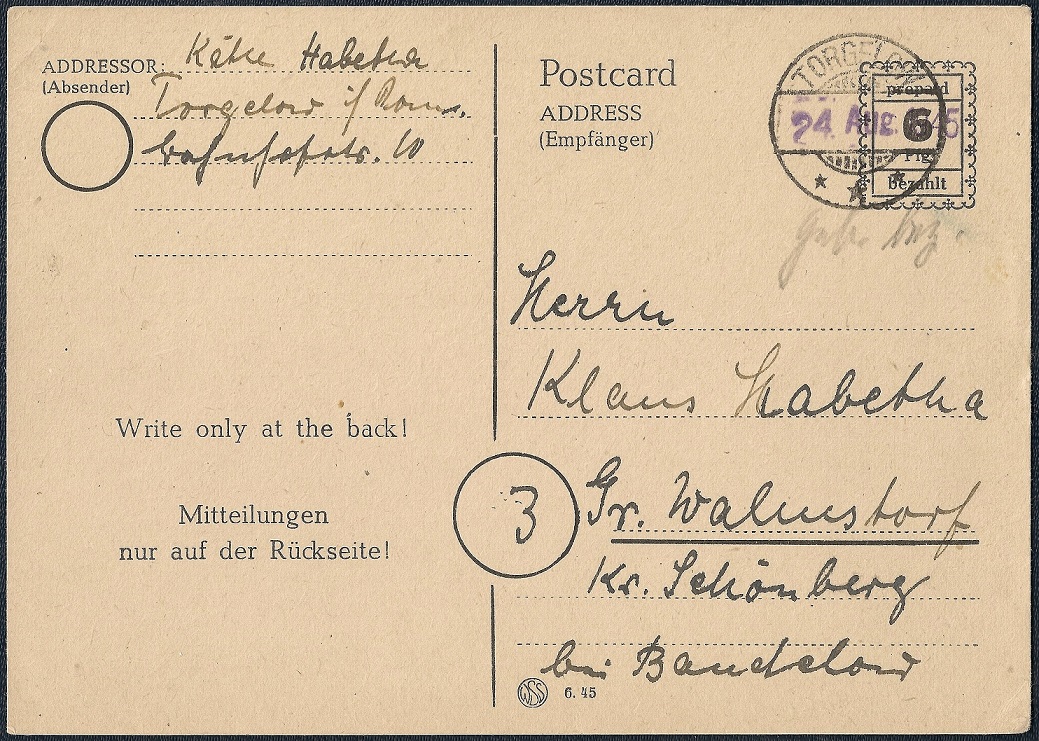 ADDRESSOR: Käthe Habetha
(Absender)
Torgelow i/Pom.
Bahnhofstr. 10
Write only at the back!
Mitteilungen
nur auf der Rückseite!
Postcard
ADDRESS
(Empfänger)
TORGELOW
24 Aug. 45
prepaid
6
Pfg
bezahlt
Geb. bez.
Herrn
Klaus Habetha
3
Gr. Walmstorf
Kr. Schönberg
bei Bandelow
WSS 6. 45